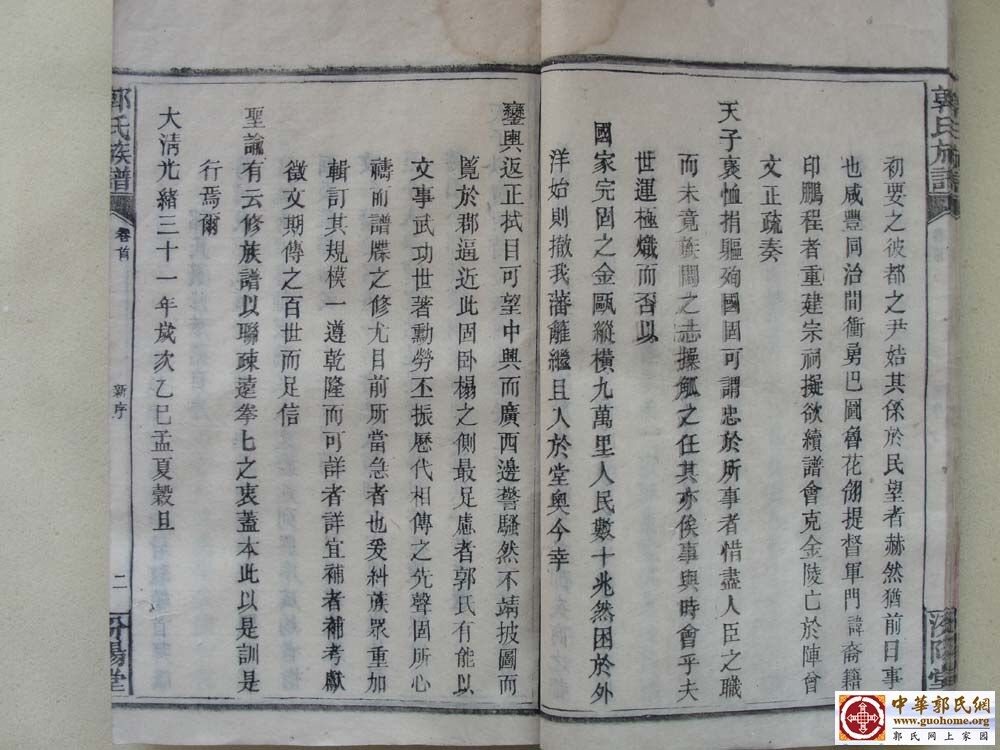 郭氏族譜
初要之彼都之尹姞其係於民望者赫然猶前日事
也咸豐同治間衝勇巴圖魯花翎提督軍門諱裔籍
印鵬程者重建宗祠擬欲續譜會克金陵亡於陣曾
文正疏奏
天子褒恤捐軀殉國固可謂忠於所事者惜盡人臣之職
而未竟族闔之志操觚之任其亦俟事與時會乎夫
世運極熾而否以
國家完固之金甌縱橫九萬里人民數十兆然困於外
洋始則撤我藩籬繼且入於堂奧今幸
汾陽堂
鑾輿返正拭目可望中興而廣西邊警騷然不靖披圖而
覽於郡逼近此固卧榻之側最足慮者郭氏有能以
文事武功世著勳勞丕振歷代相傳之先聲固所心
禱而譜牒之修尤目前所當急者也爰糾族眾重加
輯訂其規模一遵乾隆而可詳者詳宜補者補考獻
徵文期傳之百世而足信
聖諭有云修族譜以聯疎遠拳匕之衷蓋本此以是訓是
行焉爾
大清光緒三十一年歲次乙巳孟夏穀旦
郭氏族譜
卷首
新序
二
汾陽堂
中華郭氏網
www.guohome.org
郭氏网上家园